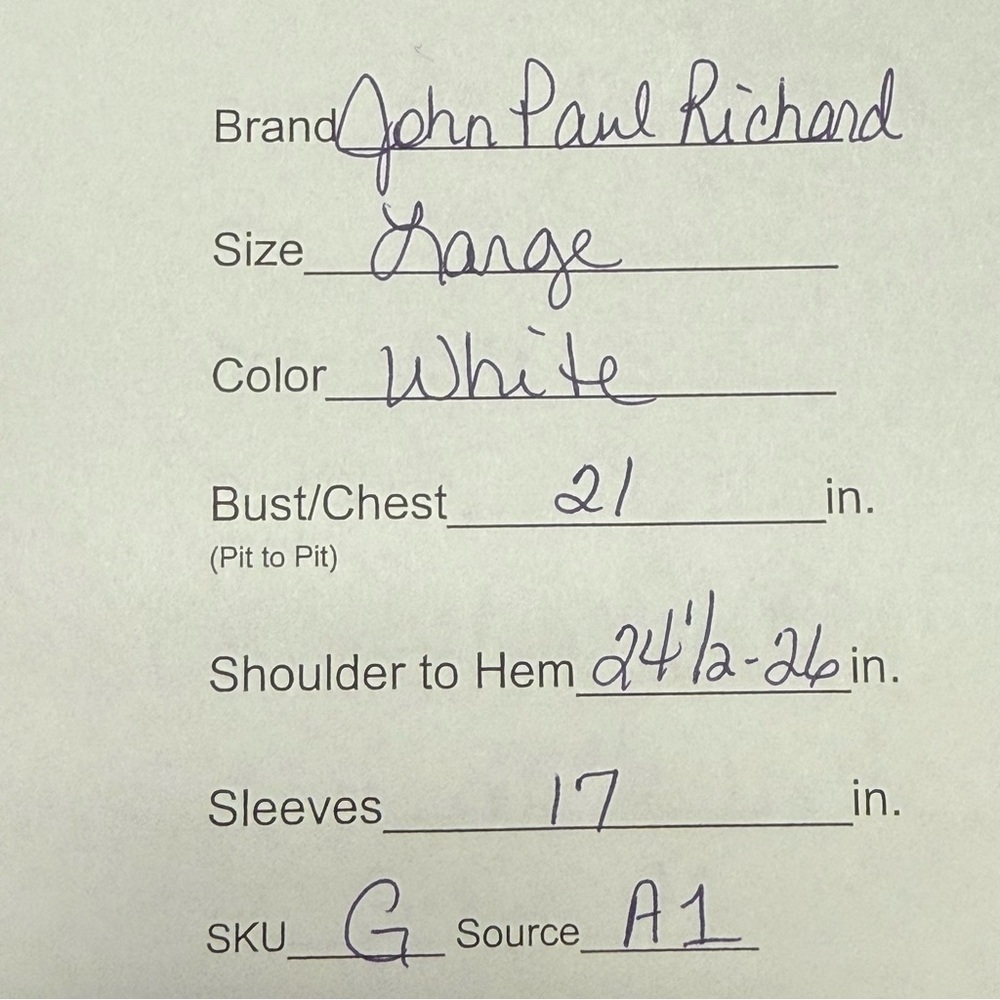 Brand John Paul Richard
Size Large
Color White
Bust/Chest 21 in.
(Pit to Pit)
Shoulder to Hem 24 1/2 - 26 in.
Sleeves 17 in.
SKU G Source A1